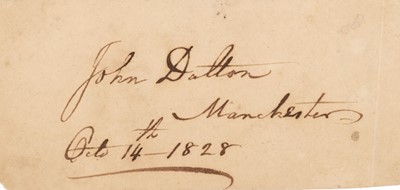 John Dalton
Manchester
Octo 14th - 1828